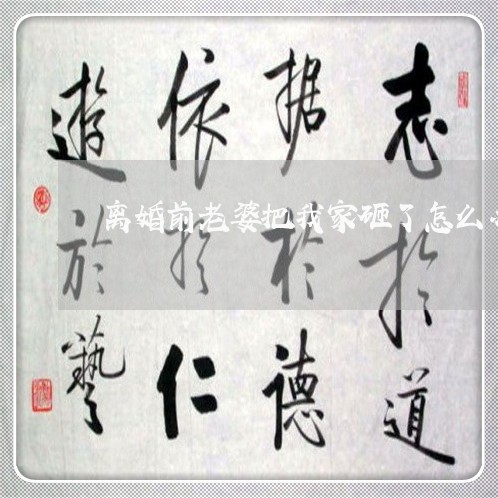 志於道
据於德
依於仁
遊於藝
离婚前老婆把我家砸了怎么